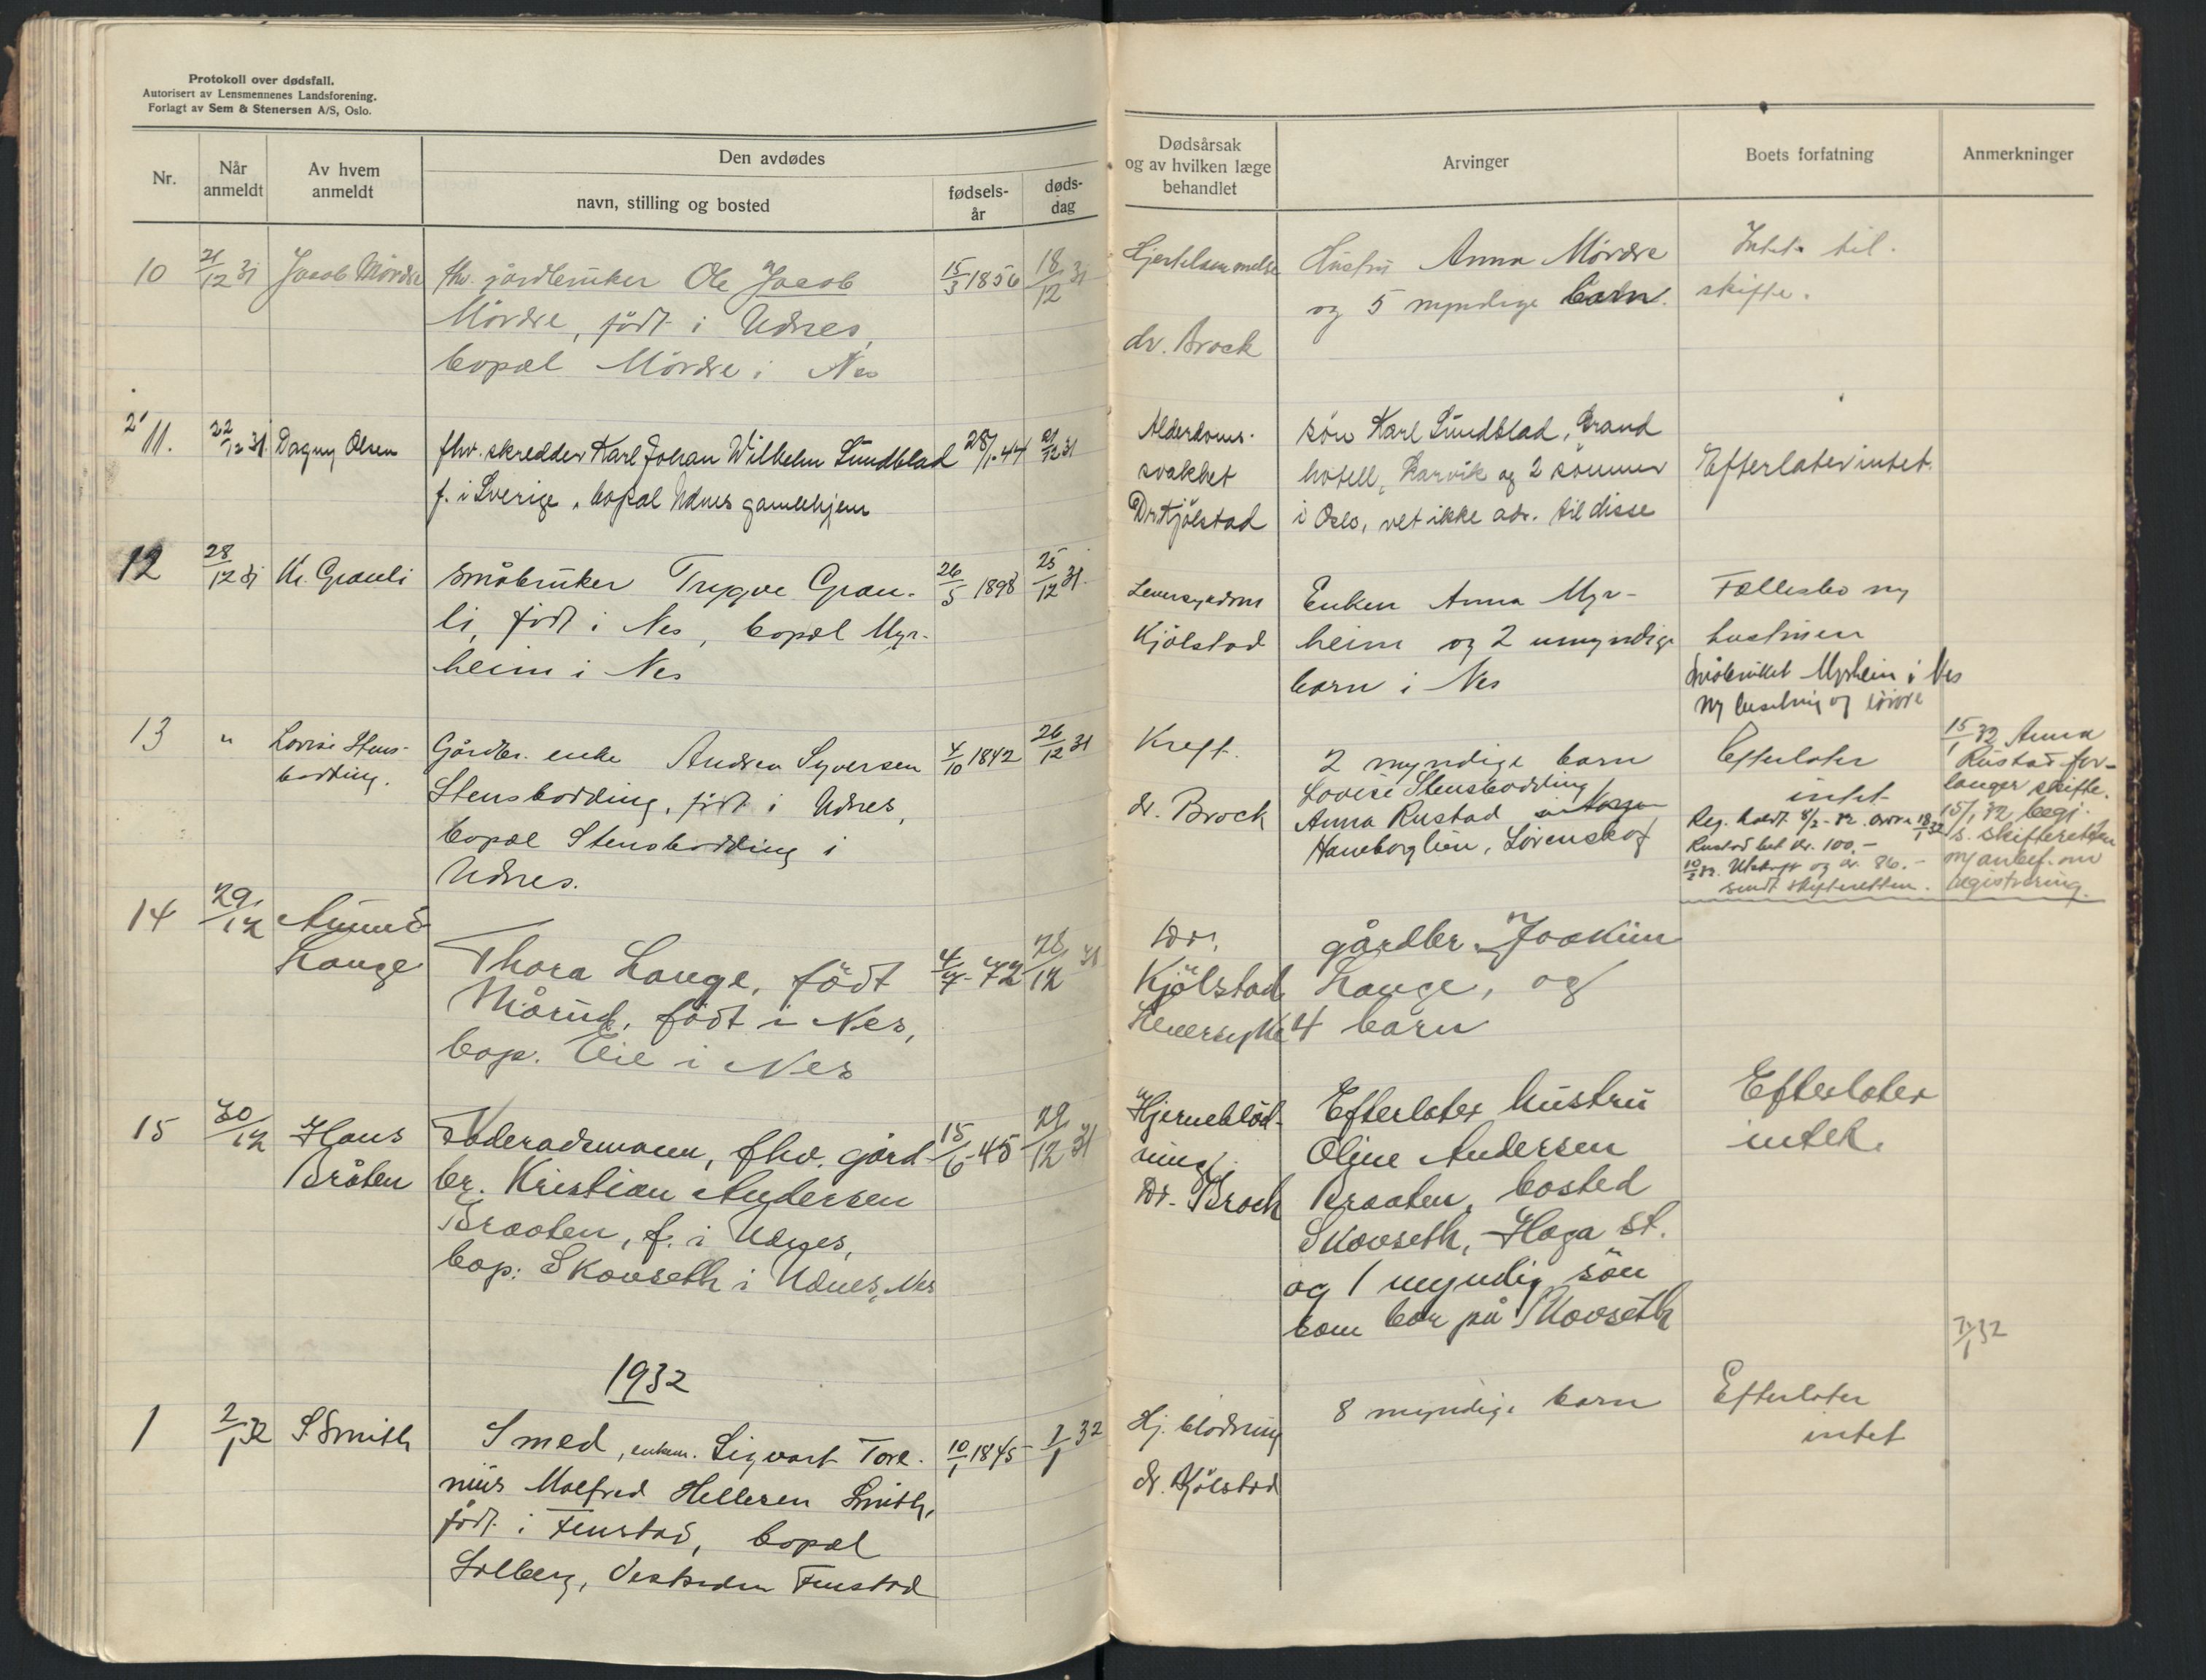 Protokoll over dødsfall.
Autorisert av Lensmennenes Landsforening.
Forlagt av Sem & Stenersen A/S, Oslo.
Nr.
Når anmeldt
Av hvem anmeldt
Den avdødes
navn, stilling og bosted
fødsels-år
døds-dag
Dødsårsak og av hvilken læge behandlet
Arvinger
Boets forfatning
Anmerkninger
10 21/12 31 Jacob Mördre fhv. jordbruker Ole Jacob 15/3 1856 18/12 31
Mördre, födt i Udnes,
bopæl Mördre i Nes
Hjertelammelse
dr. Brock
Hustru Anna Mördre
og 5 myndige barn.
Intet til
skifte.
11. 22/12 31 Dagny Olsen fhv. skredder Karl Johan Wilhelm Lundblad 28/1-44 21/12 31
f. i Sverige, bopæl Udnes gamlehjem
Alderdoms-
svakhet
Dr Kjölstad
sön Karl Lundblad, Grand
hotell, Larvik og 2 sönner
i Oslo, vet ikke adr. til disse
Efterlater intet.
12 28/12 31 Kr. Granli Småbruker Trygve Gran- 26/5 1898 25/12 31.
li, födt i Nes, bopæl Myr-
heim i Nes
Leversykdom
Kjölstad
Enken Anna Myr-
heim og 2 umyndige
barn i Nes
Fællesbo m/
hustruen
Småbruket Myrheim i Nes
m/ besetning og lösöre
13 " Lovise Stens-
bodding.
Gårdbr. enke Andrea Syversen 4/10 1842 26/12 31
Stensbodding, födt i Udnes,
bopæl Stensbodding i
Udnes.
Kreft.
dr. Brock
2 myndige barn
Lovise Stensbodding
Anna Rustad
Haneborglien, Lörenskog
Efterlater
intet
Reg. holdt 8/2-32. Anna
Rustad bet kr. 100.-
10/2 32. Utskrift og kr. 86.-
sendt skifteretten.
15/1 32 Anna
Rustad for-
langer skifte.
15/1 32 begj.
s. skifteretten
m/ anbef. om
registrering.
18/1 32
14 29/12 Amund
Lange
Thora Lange, födt 4/7-72 28/12 31
Mårud, födt i Nes,
bop. Eie i Nes
Dr.
Kjölstad
Leversyke
gårdbr. Joakim
Lange, og
4 barn
15 30/12 Hans
Bråten
Föderådsmann, fhv. gård- 15/6-45 29/12 31
br. Kristian Andersen
Braaten, f. i Udnes,
bop: Skovseth i Udnes, Nes
Hjerneblöd-
ning.
Dr. Brock
Efterlater hustru
Oline Andersen
Braaten, bosted
Skovseth, Haga st.
og 1 myndig sön
som bor på Skovseth
Efterlater
intet.
7/1 32
1932
1 2/1 32 S Smith Smed, enkem. Sigvart Tore- 10/1 1845 1/1 32
nius Walfred Hellesen Smith,
födt i Fenstad, bopæl
Solberg, Vestsiden Fenstad
Hj. blödning
dr. Kjölstad
8 myndige barn
Efterlater
intet